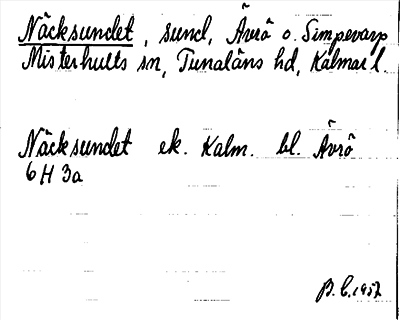 Näcksundet, sund, Ävrö o. Simpevarp
Misterhults sn, Tunaläns hd, Kalmar l.
Näcksundet ek. Kalm. bl. Ävrö
6H 3a
B. C. 1957